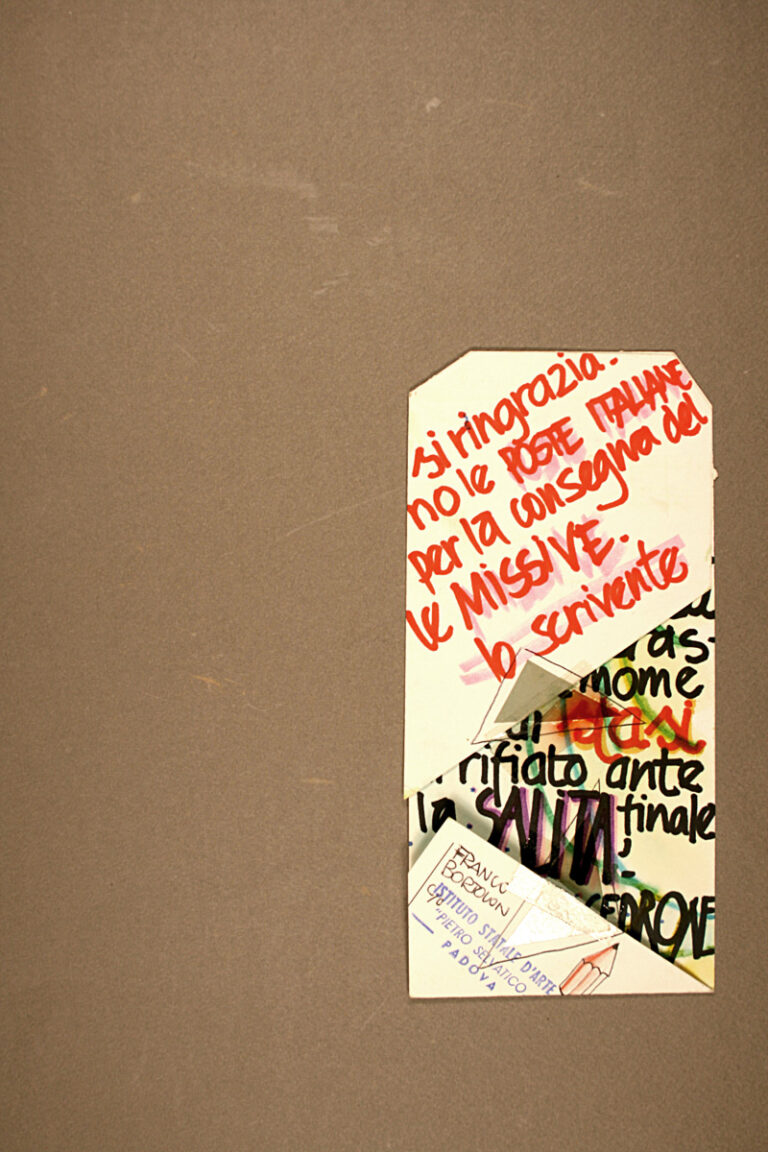 si ringrazia-
no le POSTE ITALIANE
per la consegna del
le MISSIVE.
lo scrivente
ras-
nome
di
rifiato ante
la SALITA' finale
CEDRONE
FRANCO
BORTOLON
c/o
ISTITUTO STATALE D'ARTE
"PIETRO SELVATICO
PADOVA